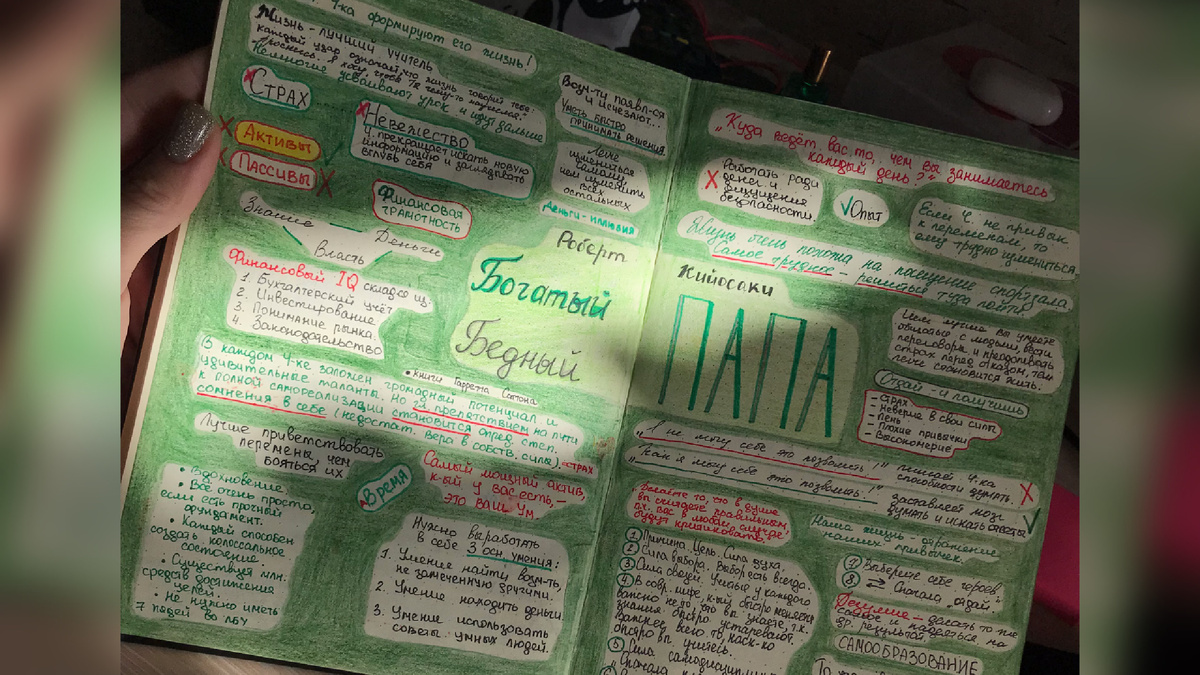 ч-ка формируют его жизнь!
Жизнь - лучший учитель
каждый удар означает, что жизнь говорит тебе:
"Проснись. Я хочу, чтобы ты чему-то научился."
Немногие усваивают урок и идут дальше
Страх
Активы
Пассивы
Невежество
Ч. прекращает искать новую
информацию и заглядывать
вглубь себя
Финансовая
грамотность
Знание
Деньги
Власть
Финансовый IQ складся из:
1. Бухгалтерский учёт
2. Инвестирование
3. Понимание рынка
4. Законодательство
Возм-ти появл-ся
и исчезают...
Уметь быстро
принимать решения
Легче
измениться
самому,
чем изменить
всех
остальных
Деньги - иллюзия
Роберт
Богатый
Бедный
• книги Гарретта Саттона
В каждом ч-ке заложен громадный потенциал и
удивительные таланты. Но препятствием на пути
к полной самореализации становится опред. степ.
сомнения в себе (недостат. вера в собств. силы). страх
Лучше приветствовать
перемены, чем
бояться их
Время
Самый мощный актив,
к-ый у вас есть, -
это ваш ум.
• Вдохновение.
• Всё очень просто,
если есть прочный
фундамент.
• Каждый способен
создать колоссальное
состояние.
• Существуя млн.
средств достижения
целей.
• Не нужно иметь
7 пядей во лбу
Нужно выработать
в себе 3 осн. умения:
1. Умение найти возм-ть
не замеченную другими.
2. Умение находить деньги
3. Умение использовать
советы умных людей.
"Куда ведёт вас то, чем вы занимаетесь
каждый день?"
Работать ради
денег и
ощущения
безопасности.
Опыт
Если ч. не привык
к переменам, то
ему трудно измениться
Жизнь очень похожа на посещение спортзала.
Самое трудное - решиться туда пойти
Кийосаки
ПАПА
Чем лучше вы умеете
общаться с людьми, вести
переговоры и преодолевать
страх перед отказом, тем
легче становится жить.
Отдай - и получишь
- страх
- Неверие в свои силы
- Лень
- Плохие привычки
- Высокомерие
"Я не могу себе это позволить!" лишает ч-ка
способности думать.
"Как я могу себе это позволить?" заставляет мозг
думать и искать ответы
Делайте то, что в душе
вы считаете правильным,
т.к. вас в любом случае
будут критиковать.
Наша жизнь - отражение
наших привычек.
1 Причина. Цель. Сила духа.
2 Сила выбора. Выбор есть всегда.
3 Сила связей. Учитесь у каждого
4 В совр. мире, к-ый быстро меняется
важно не то, что вы знаете, т.к.
знания быстро устаревают.
Важнее всего то, наск-ко
быстро вы учитесь.
5 Сила самодисциплины
"Сначала
7 Выберите себе героев
8 Сначала "отдай".
Безумие - делать то же
самое и надеяться на
др. результат.
САМООБРАЗОВАНИЕ